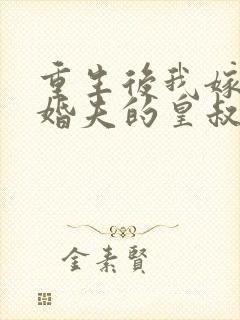 重生後我嫁
婚夫的皇叔
金素賢